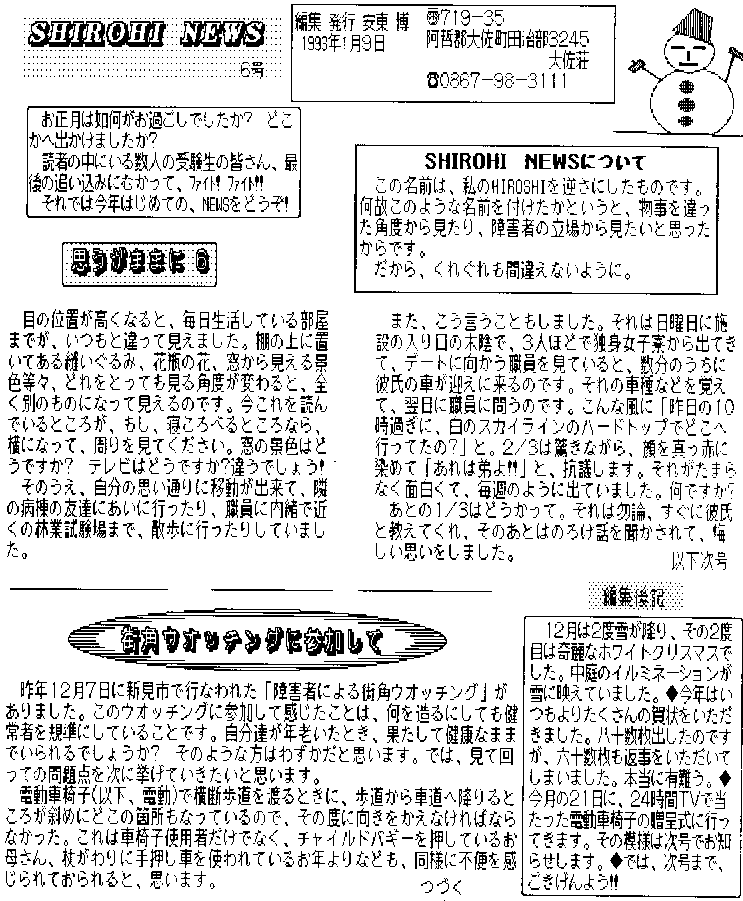 SHIROHI NEWS
6号
編集 発行 安東 博
1993年1月9日
〠719-35
阿哲郡大佐町田治部3245
大佐荘
☎0867-98-3111
お正月は如何がお過ごしでしたか? どこ
かへ出かけましたか?
読者の中にいる数人の受験生の皆さん、最
後の追い込みにむかって、ﾌｧｲﾄ! ﾌｧｲﾄ!!
それでは今年はじめての、NEWSをどうぞ!
SHIROHI NEWSについて
この名前は、私のHIROSHIを逆さにしたものです。
何故このような名前を付けたかというと、物事を違っ
た角度から見たり、障害者の立場から見たいと思った
からです。
だから、くれぐれも間違えないように。
思うがままに 6
目の位置が高くなると、毎日生活している部屋
までが、いつもと違って見えました。棚の上に置
いてある縫いぐるみ、花瓶の花、窓から見える景
色等々、どれをとっても見る角度が変わると、全
く別のものになって見えるのです。今これを読ん
でいるところが、もし、寝ころべるところなら、
横になって、周りを見てください。窓の景色はど
うですか? テレビはどうですか?違うでしょう!
そのうえ、自分の思い通りに移動が出来て、隣
の病棟の友達にあいに行ったり、職員に内緒で近
くの林業試験場まで、散歩に行ったりしていまし
た。
また、こう言うこともしました。それは日曜日に施
設の入り口の木陰で、3人ほどで独身女子寮から出てき
て、デートに向かう職員を見ていると、数分のうちに
彼氏の車が迎えに来るのです。それの車種などを覚え
て、翌日に職員に問うのです。こんな風に「昨日の10
時過ぎに、白のスカイラインのハードトップでどこへ
行ってたの?」と。2/3は驚きながら、顔を真っ赤に
染めて「あれは弟よ!!」と、抗議します。それがたまら
なく面白くて、毎週のように出ていました。何ですか?
あとの1/3はどうかって。それは勿論、すぐに彼氏
と教えてくれ、そのあとはのろけ話を聞かされて、悔
しい思いをしました。
以下次号
街角ウオッチングに参加して
昨年12月7日に新見市で行なわれた「障害者による街角ウオッチング」が
ありました。このウオッチングに参加して感じたことは、何を造るにしても健
常者を規準にしていることです。自分達が年老いたとき、果たして健康なまま
でいられるでしょうか? そのような方はわずかだと思います。では、見て回
っての問題点を次に挙げていきたいと思います。
電動車椅子(以下、電動)で横断歩道を渡るときに、歩道から車道へ降りると
ころが斜めにどこの箇所もなっているので、その度に向きをかえなければなら
なかった。これは車椅子使用者だけでなく、チャイルドバギーを押しているお
母さん、杖がわりに手押し車を使われているお年よりなども、同様に不便を感
じられておられると、思います。
つづく
編集後記
12月は2度雪が降り、その2度
目は奇麗なホワイトクリスマスで
した。中庭のイルミネーションが
雪に映えていました。◆今年はい
つもよりたくさんの賀状をいただ
きました。八十数枚出したのです
が、六十数枚も返事をいただいて
しまいました。本当に有難う。◆
今月の21日に、24時間TVで当
たった電動車椅子の贈呈式に行っ
てきます。その模様は次号でお知
らせします。◆では、次号まで、
ごきげんよう!!